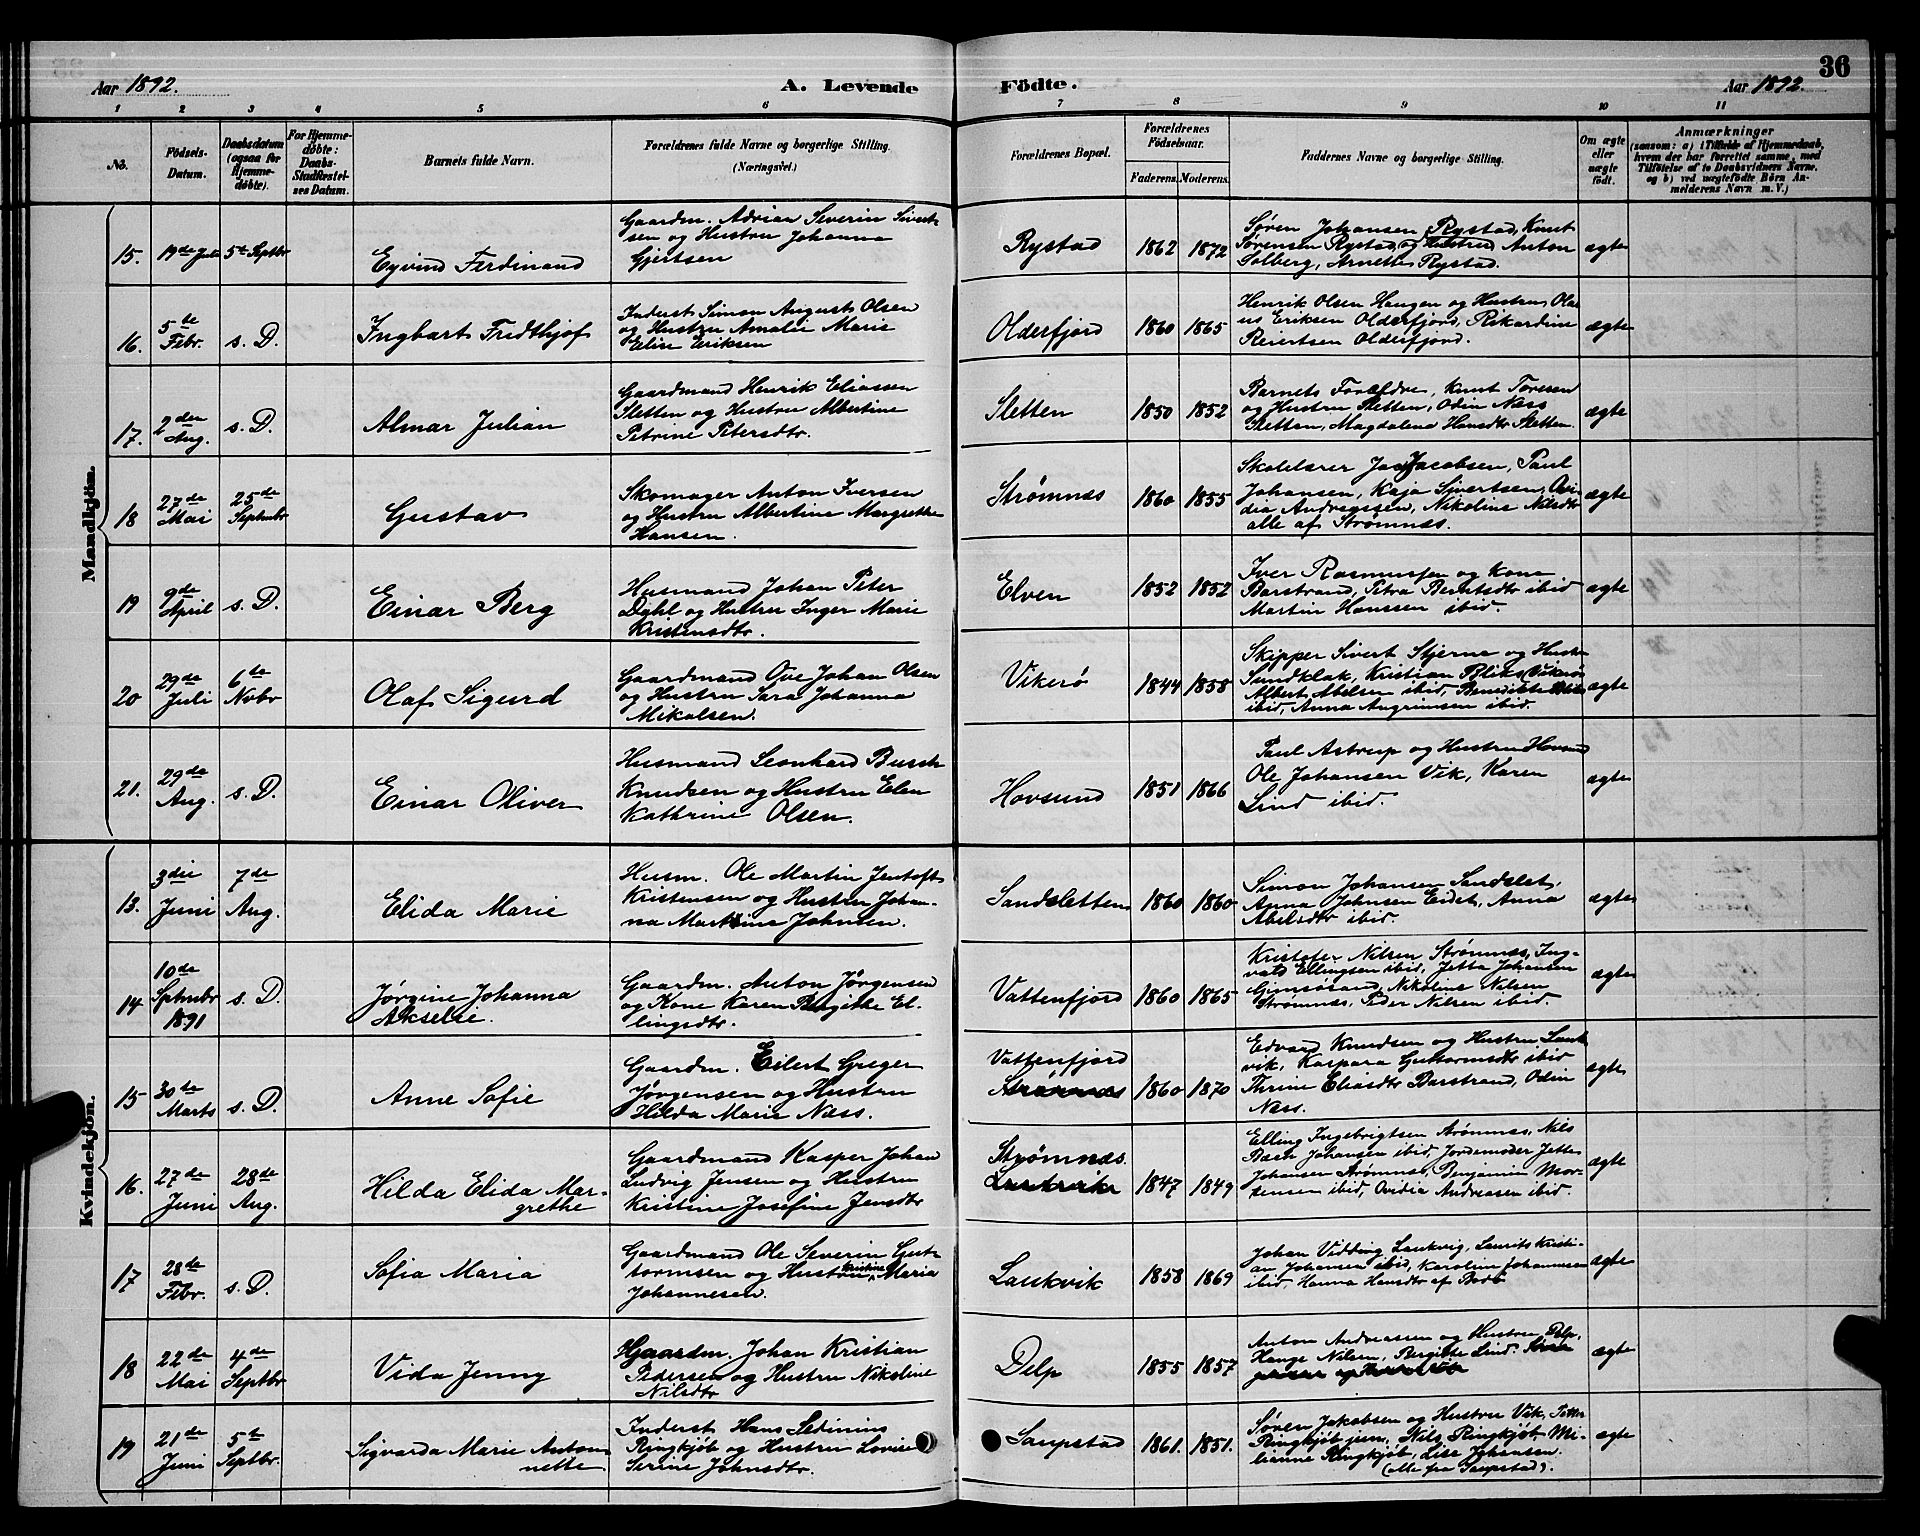 Aar 1892.
A. Levende Födte.
Aar 1892.
36
1 2 3 4 5 6 7 8 9 10 11
No.
Födsels-Datum.
Daabsdatum (ogsaa for Hjemme-døbte).
For Hjemme-døbte: Daabs-Stadfæstel-ses Datum.
Barnets fulde Navn.
Forældrenes fulde Navne og borgerlige Stilling. (Næringsvei.)
Forældrenes Bopæl.
Forældrenes Födselsaar.
Faderens. Moderens.
Faddernes Navne og borgerlige Stilling.
Om ægte eller uægte födt.
Anmærkninger
(saasom: a) i Tilfælde af Hjemmedaab, hvem der har forrettet samme, med Tilføielse af to Daabsvidners Navne, og b) ved uægtefödte Börn An-melderens Navn m. V.)
Mandkjön.
15. 19de Juli 5te Septbr Eyvind Ferdinand
Gaardm. Adrian Severin Sivert-
sen og Hustru Johanna
Gjertsen
Rystad 1862 1872
Søren Johansen Rystad, Knut
Sørensen Rystad, og Hustru Anton
Solberg, Arnette Rystad.
ægte
16. 5te Febr. s. D. Ingbart Fredthjof
Inderst Simon August Olsen
og Hustru Amalie Marie
Elise Eriksen
Olderfjord 1860 1865
Henrik Olsen Haugen og Hustru, Ola-
us Eriksen Olderfjord, Rikardine
Reiertsen Olderfjord.
ægte
17. 2den Aug. s. D. Almar Julian
Gaardmand Henrik Eliassen
Sletten og Hustru Albertine
Petrine Petersdtr.
Sletten 1850 1852
Barnets Forældre, Knut Toresen
og Hustru Sletten, Odin Næss
Sletten, Magdalena Hansdtr Sletten.
ægte
18 27de Mai 25de Septmbr Gustav
Skomager Anton Iversen
og Hustru Albertine Margrethe
Hansen.
Strømnæs 1860 1855
Skolelærer Jacobsen, Paul
Johansen, Kaja Sivertsen, Ovi-
dia Andreassen, Nikoline Nilsdtr
alle af Strømnæs.
ægte
19 9de April s. D. Einar Berg
Husmand Johan Peter
Dahl og Hustru Inger Marie
Kristensdtr.
Elven 1852 1852
Iver Rasmussen og Kone
Barstrand, Petra Berntsdtr ibid
Martin Hanssen ibid.
ægte
20 29de Juli 6te Novbr Olaf Sigurd
Gaardmand Ove Johan Olsen
og Hustru Sara Johanna
Mikalsen.
Vikerø 1844 1858
Skipper Sivert Stjerne og Hustr
Sundklak, Kristian Bliks Vikerø
Albert Abelsen ibid, Benedikte
ibid, Anna Angrimsen ibid.
ægte
21. 29de Aug. s. D. Einar Oliver
Husmand Leonhard Busch
Knudsen og Hustru Elen
Kathrine Olsen.
Hovsund 1851 1866
Paul Astrup og Hustru Hovsund
Ole Johansen Vik, Karen
Lind ibid.
ægte
Kvindekjön.
13. 3die Juni 7de Aug. Elida Marie
Husm. Ole Martin Jentoft
Kristensen og Hustru Johan-
na Martine Johnsen.
Sandsletten 1860 1860
Simon Johansen Sandslet,
Anna Johnsen Eidet, Anna
Abelsdtr ibid.
ægte
14 10de Sptmbr 1891 s. D. Jørgine Johanna
Akselse.
Gaardm. Anton Jørgensen
og Kone Karen Bergithe El-
lingsdtr.
Vattenfjord 1860 1865
Kristofer Nilsen Strømnæs, Ing-
vald Ellingsen ibid, Jetta Johansen
Gimsøsand, Nikoline Nilsen
Strømnæs, Peder Nilsen ibid.
ægte
15 30te Marts s. D. Anne Sofie
Gaardm. Eilert Greger
Jørgensen og Hustru
Hilda Marie Næss.
Vattenfjord
Strømnæs
1860 1870
Edvard Knudsen og Hustru, Lauk-
vik, Kaspara Guttormsdtr ibid
Thrine Eliasdtr Barstrand, Odin
Næss.
ægte
16. 27de Juni 28de Aug. Hilda Elida Mar-
grethe
Gaardmand Kasper Johan
Ludvig Jensen og Hustru
Kristine Josefine Jensdtr
Strømnæs.
1847 1849
Elling Ingebrigtsen Strømnæs, Nils
Bæch Johansen ibid, Jordemoder Jette
Johansen Strømnæs, Benjamin Mor-
tensen ibid, Ovidia Andreasen ibid.
ægte
17 28de Febr. s. D. Sofia Maria
Gaardmand Ole Severin Gut-
tormsen og Hustru Kristine Maria
Johannesen.
Laukvik 1858 1869
Johan Vidding Laukvig, Laurits Kristi-
an Johansen ibid, Karoline Johannesen
ibid, Hanna Hansdtr af Bodø
ægte
18 22de Mai 4de Septbr Vida Jenny
Gaardm. Johan Kristian
Pedersen og Hustru Nikoline
Nilsdtr
Delp 1855 1857
Anton Andreassen og Hustru, Delp,
Hange Nilsen, Bergitte Lind.
ægte
19 21de Juni 5te Septbr. Sigvarda Marie Anton-
nette
Inderst Hans Sedinius
Ringkjøb og Hustru Lovise
Serine Johnsdtr.
Saupstad 1861. 1851.
Søren Jakobsen og Hustru Vik, Petter
Ringkjøb jun, Nils Ringkjøb, Mi-
lianne Ringkjøb, Lise Johansen.
(alle fra Saupstad).
ægte